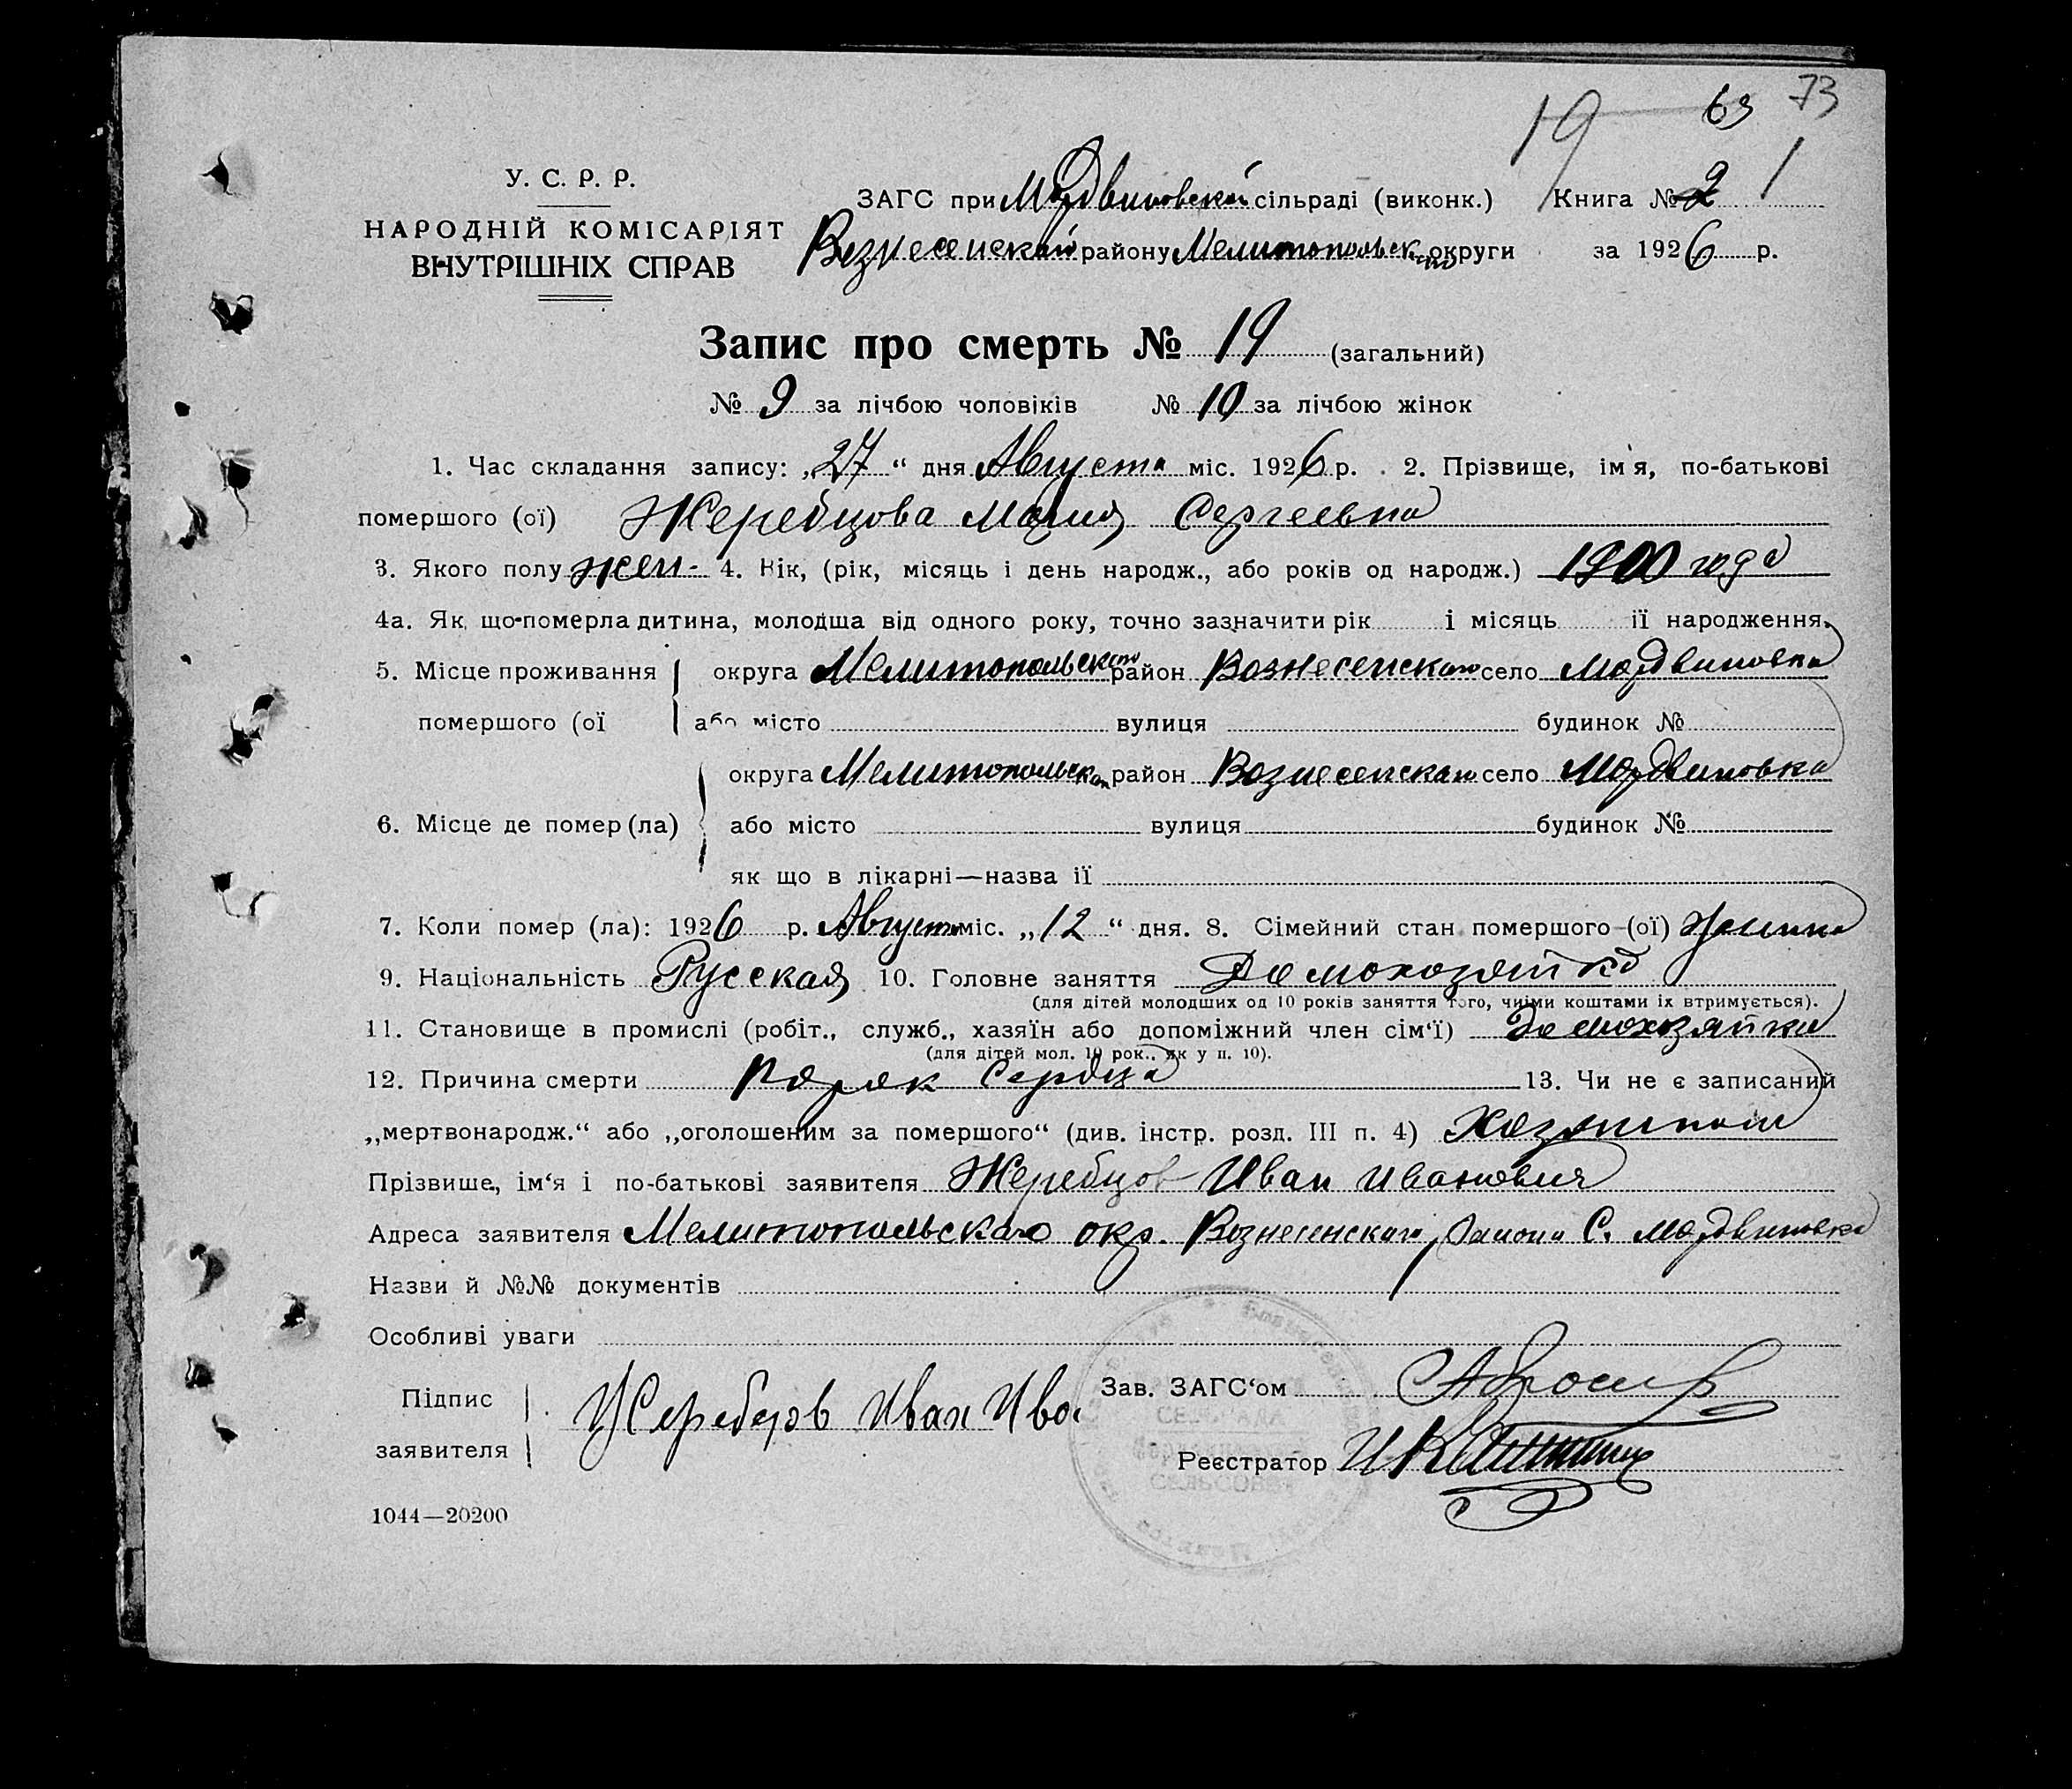 19 63 73
У. С. Р. Р.
НАРОДНІЙ КОМІСАРІЯТ
ВНУТРІШНІХ СПРАВ
ЗАГС при Мордвиновской сільраді (виконк.) Книга № 2 1
Вознесенской району Мелитопольского округи за 1926 р.
Запис про смерть № 19 (загальний)
№ 9 за лічбою чоловіків № 10 за лічбою жінок
1. Час складання запису: „27“ дня Августа міс. 1926 р. 2. Прізвище, ім'я, по-батькові
помершого (ої) Жеребцова Мария Сергеевна
3. Якого полу жен. 4. Вік, (рік, місяць і день народж., або років од народж.) 1900 года
4а. Як що-померла дитина, молодша від одного року, точно зазначити рік і місяць її народження.
5. Місце проживання округа Мелитопольского район Вознесенского село Мордвиновка
помершого (ої або місто вулиця будинок №
округа Мелитопольского район Вознесенского село Мордвиновка
6. Місце де помер (ла) або місто вулиця будинок №
як що в лікарні—назва її
7. Коли помер (ла): 1926 р. Августа міс. „12“ дня. 8. Сімейний стан помершого (ої)
9. Національність Русская 10. Головне заняття Домохозяйка
(для дітей молодших од 10 років заняття того, чиїми коштами їх втримується).
11. Становище в промислі (робіт., служб., хазяїн або допоміжний член сім‘ї) Домохозяйка
(для дітей мол. 10 рок., як у п. 10).
12. Причина смерти Порок Сердца 13. Чи не є записаний
„мертвонародж.“ або „оголошеним за помершого“ (див. інстр. розд. III п. 4)
Прізвише, ім‘я і по-батькові заявителя Жеребцов Иван Иванович
Адреса заявителя Мелитопольского окр. Вознесенского района С. Мордвиновка
Назви й №№ документів
Особливі уваги
Підпис
заявителя
Жеребцов Иван Ива
Зав. ЗАГС‘ом
Реєстратор
СЕЛЬРАДА
СЕЛЬСОВЕТ
1044—20200